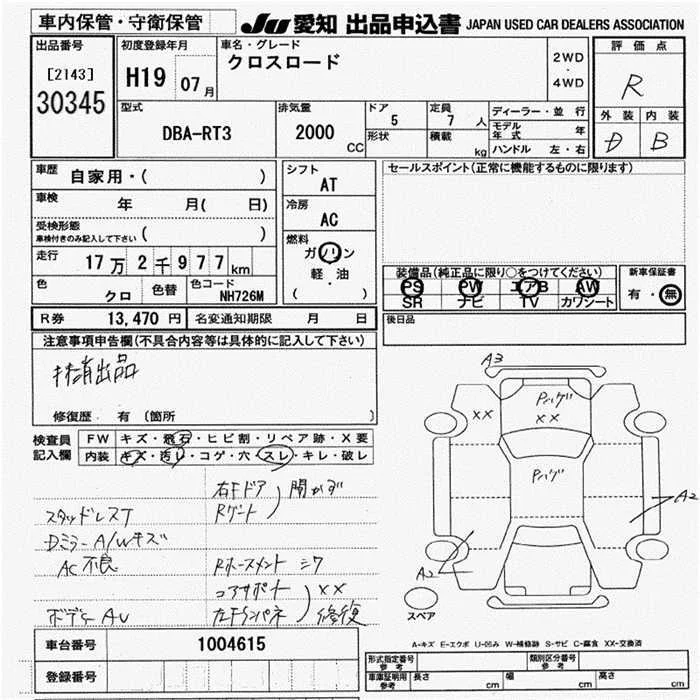 車内保管・守衛保管
JU 愛知 出品申込書 JAPAN USED CAR DEALERS ASSOCIATION
出品番号
[2143]
30345
初度登録年月
H19 07 月
車名・グレード
クロスロード
2WD
・
4WD
評価点
R
外装 内装
D B
型式
DBA-RT3
排気量
2000 CC
ドア
5
形状
定員
7 人
積載
kg
ディーラー・並行
モデル年式 年
ハンドル 左・右
車歴 自家用・( )
車検 年 月( 日)
受検形態
車検付きのみ記入して下さい ( )
走行 17万2千977km
色 クロ 色替 色コード NH726M
シフト
AT
冷房
AC
燃料
ガソリン
軽・油
( )
セールスポイント(正常に機能するものに限ります)
装備品(純正品に限り○をつけてください)
PS PW エアB AW
SR ナビ TV カワシート
新車保証書
有・無
R券 13,470 円 名変通知期限 月 日
後日品
注意事項申告欄(不具合内容等は具体的に記入して下さい)
出品
修復歴・有 (箇所 )
検査員記入欄
FW キズ・飛石・ヒビ割・リペア跡・X要
内装 キズ・汚レ・コゲ・穴・スレ・キレ・破レ
右Fドア 開かず
スタッドレスT
Dミラー A/Wキズ
AC不良
コアサポート XX
修復
A3
XX
XX
A2
A2
スペア
A-キズ E-エクボ U-凹み W-補修跡 S-サビ C-腐食 XX-交換済
車台番号 1004615
登録番号
型式指定番号 参考
類別区分番号 参考
車庫証明用 参考 長さ cm 幅 cm 高さ cm